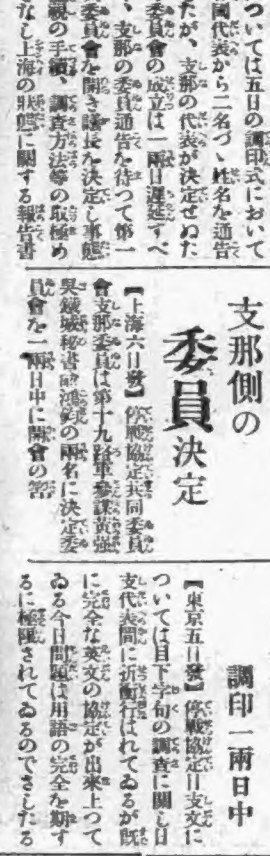 ついては五日の調印式において
國代表から二名づゝ姓名を通告
たが、支那の代表が決定せぬた
委員會の成立は一兩日遲延すべ
、支那の委員通告を待つて第一
委員會を開き議長を決定し事態
視の手續、調査方法等の取極め
なし上海の狀態に關する報告書
支那側の
委員決定
【上海六日發】停戰協定共同委員
會支那委員は第十九路軍參謀黃强
吳鐵城秘書兪鴻鈞の兩名に決定委
員會を一兩日中に開會の筈
調印一兩日中
【東京五日發】停戰協定日支文に
ついては目下字句の調査に關し日
支代表間に折衝行はれてゐるが既
に完全な英文の協定が出來上つて
ゐる今日問題は用語の完全を期す
るに極限されてゐるのでさしたる